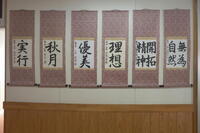 無為
自然
開拓
精神
理想
優美
秋月
実行